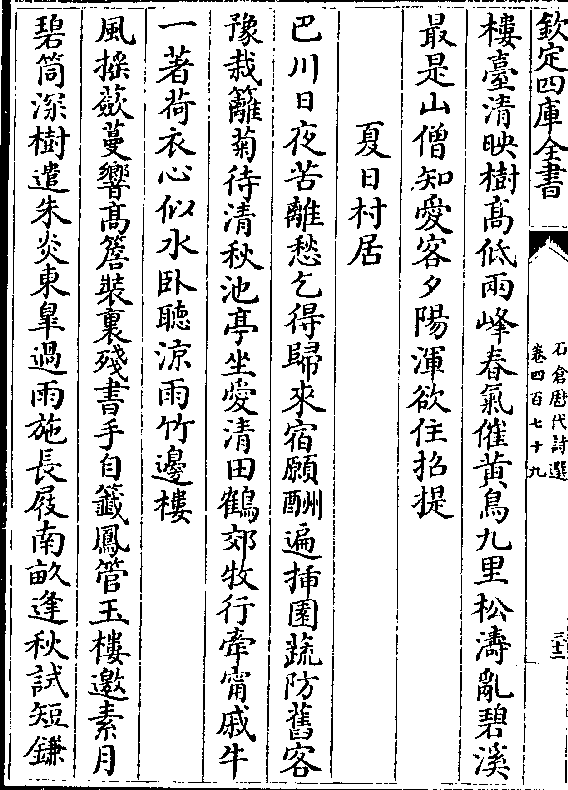 欽定四庫全書
石倉歷代詩選
卷四百七十九
三十二
樓臺清映樹髙低兩峰春氣催黄鳥九里松濤亂碧溪
最是山僧知愛客夕陽渾欲住招提
夏日村居
巴川日夜苦離愁乞得歸來宿願酬遍挿園蔬防舊客
豫栽籬菊待清秋池亭坐愛清田鶴郊牧行牽甯戚牛
一著荷衣心似水卧聽涼雨竹邊樓
風摇蔌蔓響髙簷裝裏殘書手自籖鳳管玉樓邀素月
碧筒深樹遣朱炎東臯過雨施長屐南畝逢秋試短鎌